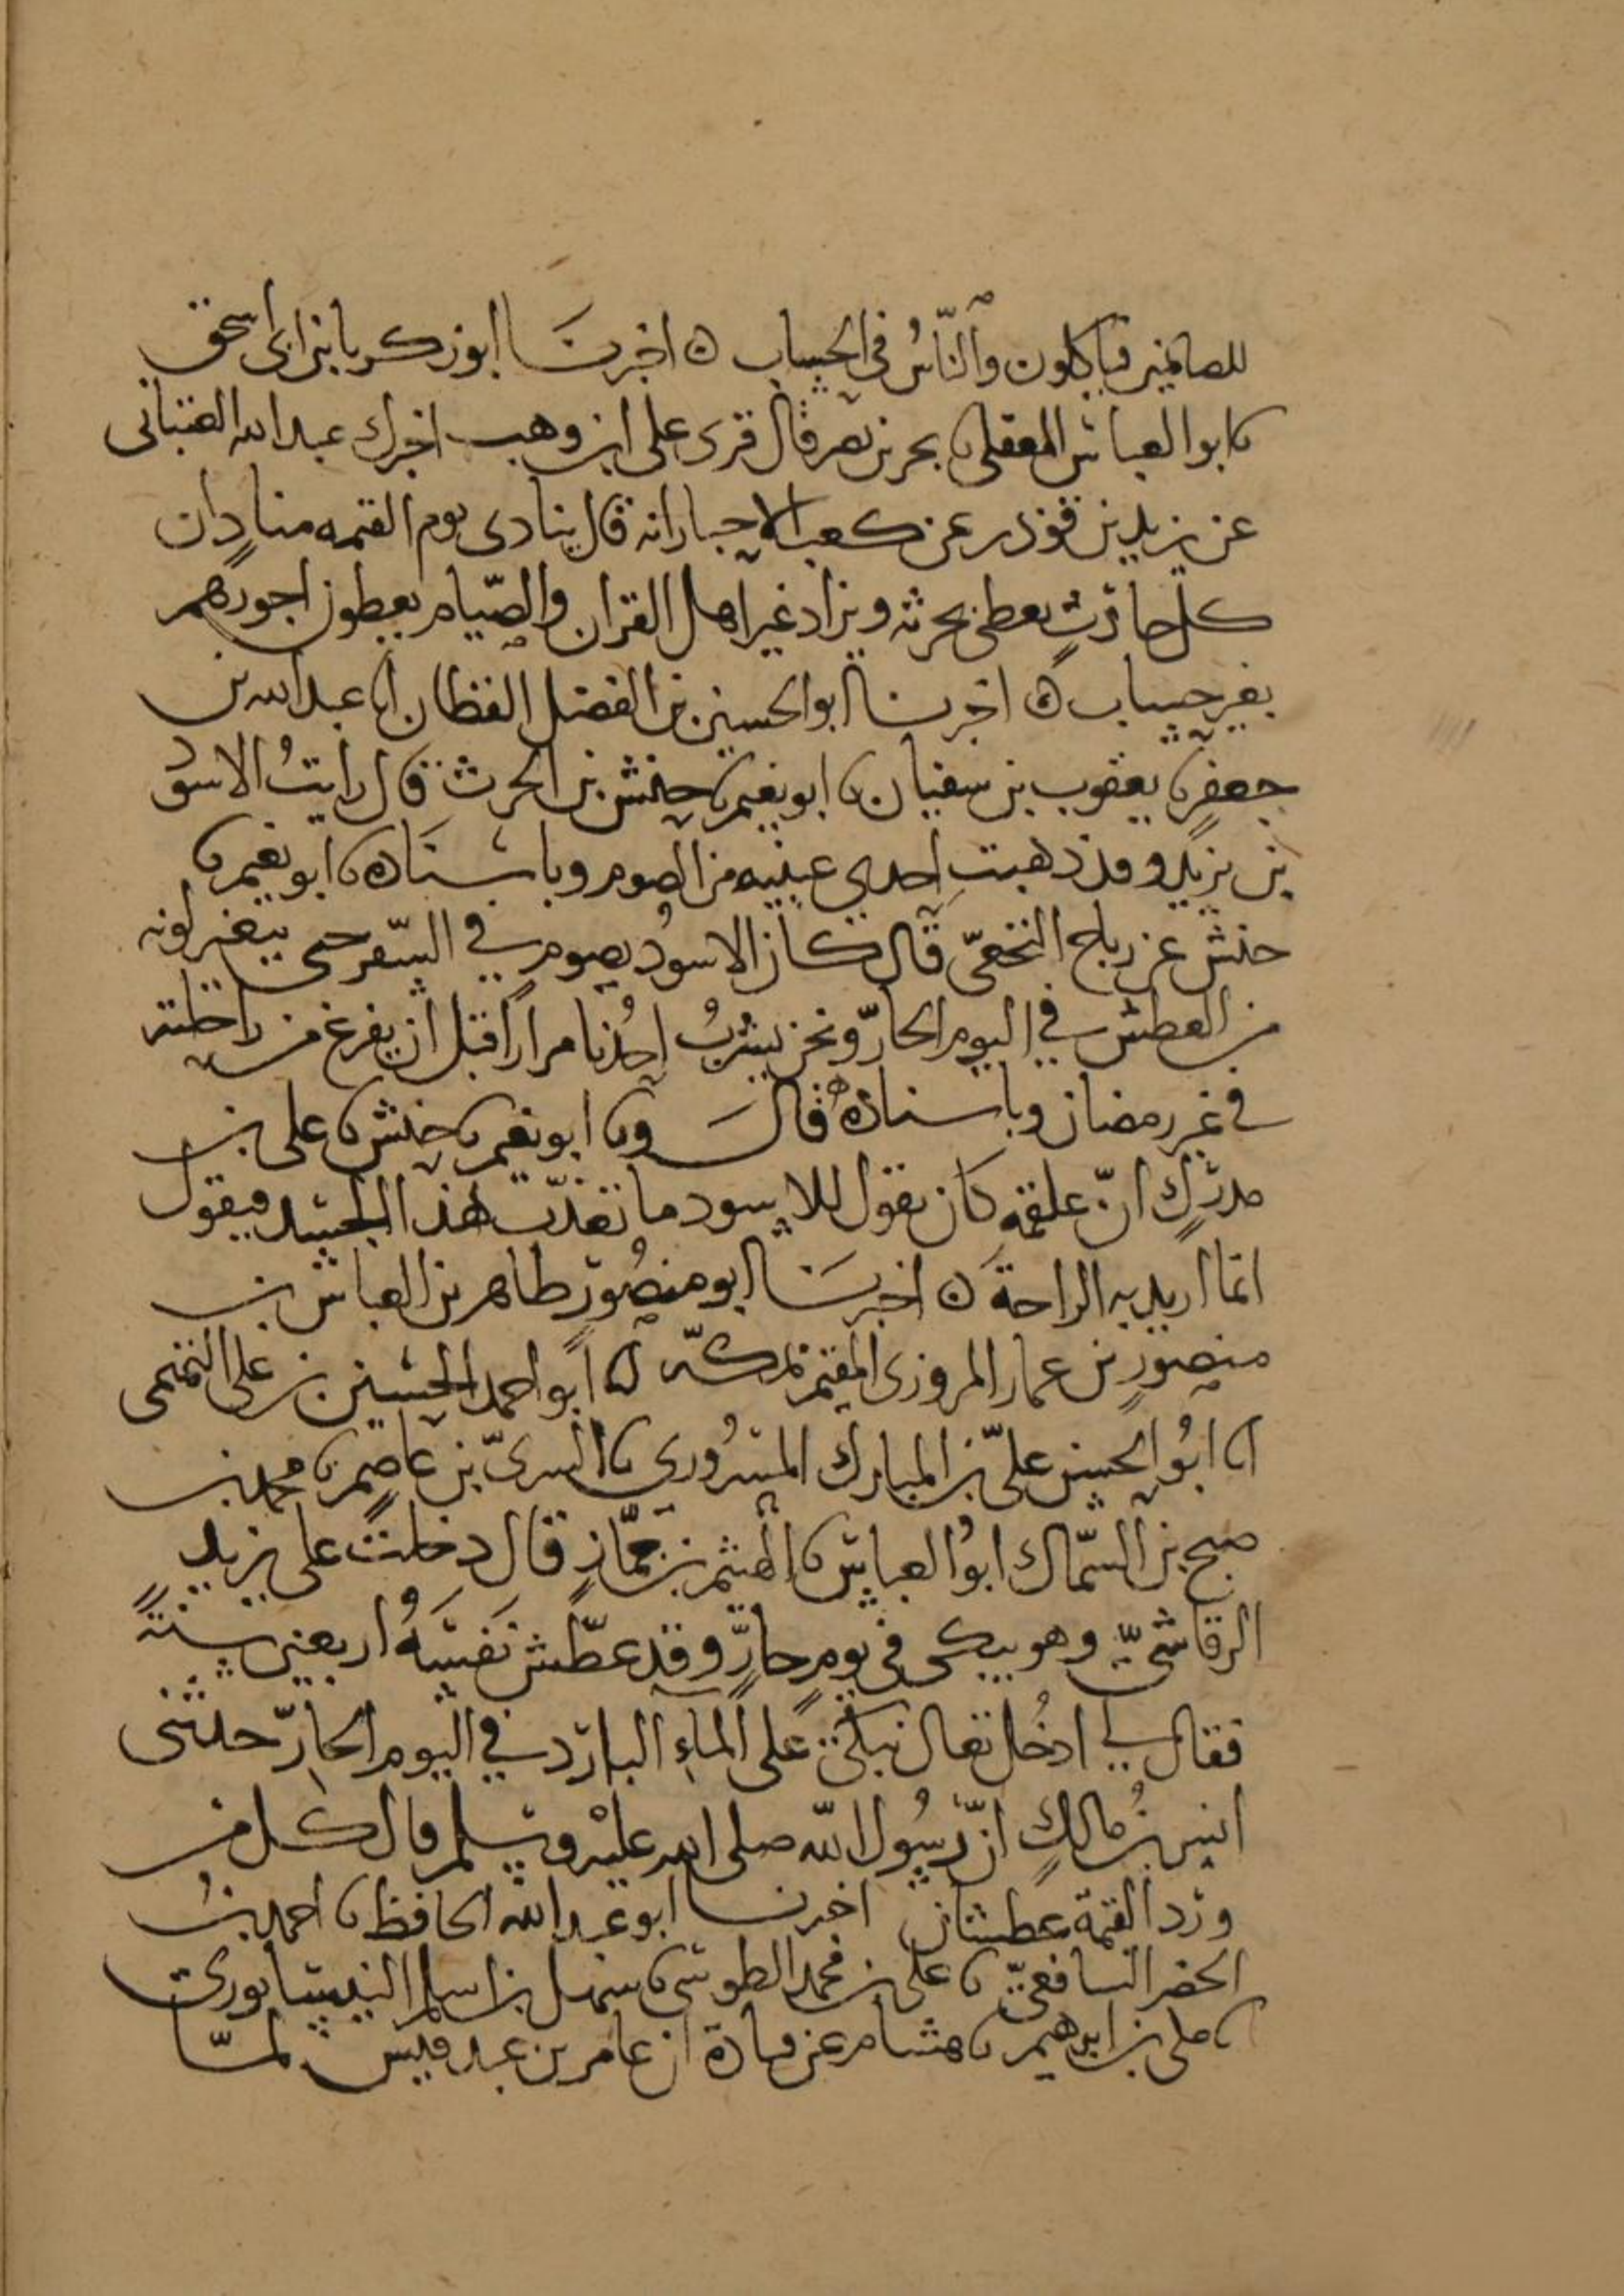 للصائمين فياكلون والنّاسُ في الحساب ه اخبرنَا ابو زكريا بن ابى اسحق
نا ابو العباس المعقلى نا بحر بن نصر قال قرى على ابن وهب اخبرك عبد الله القتبانى
عن يزيد بن قوذر عن كعب الاحبار انه قال ينادى يوم القيمه منادٍ ان
كل حارثٍ يعطى بحرثه ويزاد غير اهل القران والصّيام يعطون اجورهم
بغير حساب ه اخبرنا ابو الحسين بن الفضل القطان انا عبد الله بن
جعفر نا يعقوب بن سفيان نا ابو نعيم نا حنش بن الحرث قال رايتُ الاسود
بن يزيد وقد ذهبت احدى عينيه من الصوم وباسناده نا ابو نعيم نا
حنش عن رباح النخعىّ قال كان الاسودُ يصوم في السّفر حتى يتغير لونه
من العطش في اليوم الحارّ ونحن يشربُ احدُنا مرارًا قبل ان يفرغ من راحلته
في غير رمضان وباسناده قالَ ونا ابو نعيم نا حنش نا على بن
مدركٍ انّ علقمة كان يقول للاسود ما تعذّب هذا الجسد فيقول
انما اريد به الراحةَ ه اخبرنَا ابو منصورٍ طاهر بن العباس بن
منصورٍ بن عمار المروزى المقيم بمكّة انا ابو احمد الحسين بن على التميمى
انا ابُو الحسين علىّ بن المبارك المسرُورى نا السرىّ بن عاصم نا محمد بن
صبح بن السّماك ابوُ العباس نا الهيثم بن جمّازٍ قال دخلت على يزيد
الرقاشىّ وهو يبكى في يومٍ حارٍّ وقد عطّش نَفسَهُ اربعين سنةً
فقال لي ادخُل تعال نبكى على الماءِ الباردِ في اليوم الحارّ حدثنى
انس بنُ مالكٍ انّ رسُول الله صلى الله عليْه وسلم قال كل من
ورد القيمة عطشان اخبرنا ابو عبد الله الحافظ نا احمد بنُ
الخضر الشافعىّ نا على بن محمد الطوسى نا سهل بن اسلم النيسابورى
نا مكى بن ابرهيم نا هشام عن قتادة ان عامر بن عبد قيس لمّا